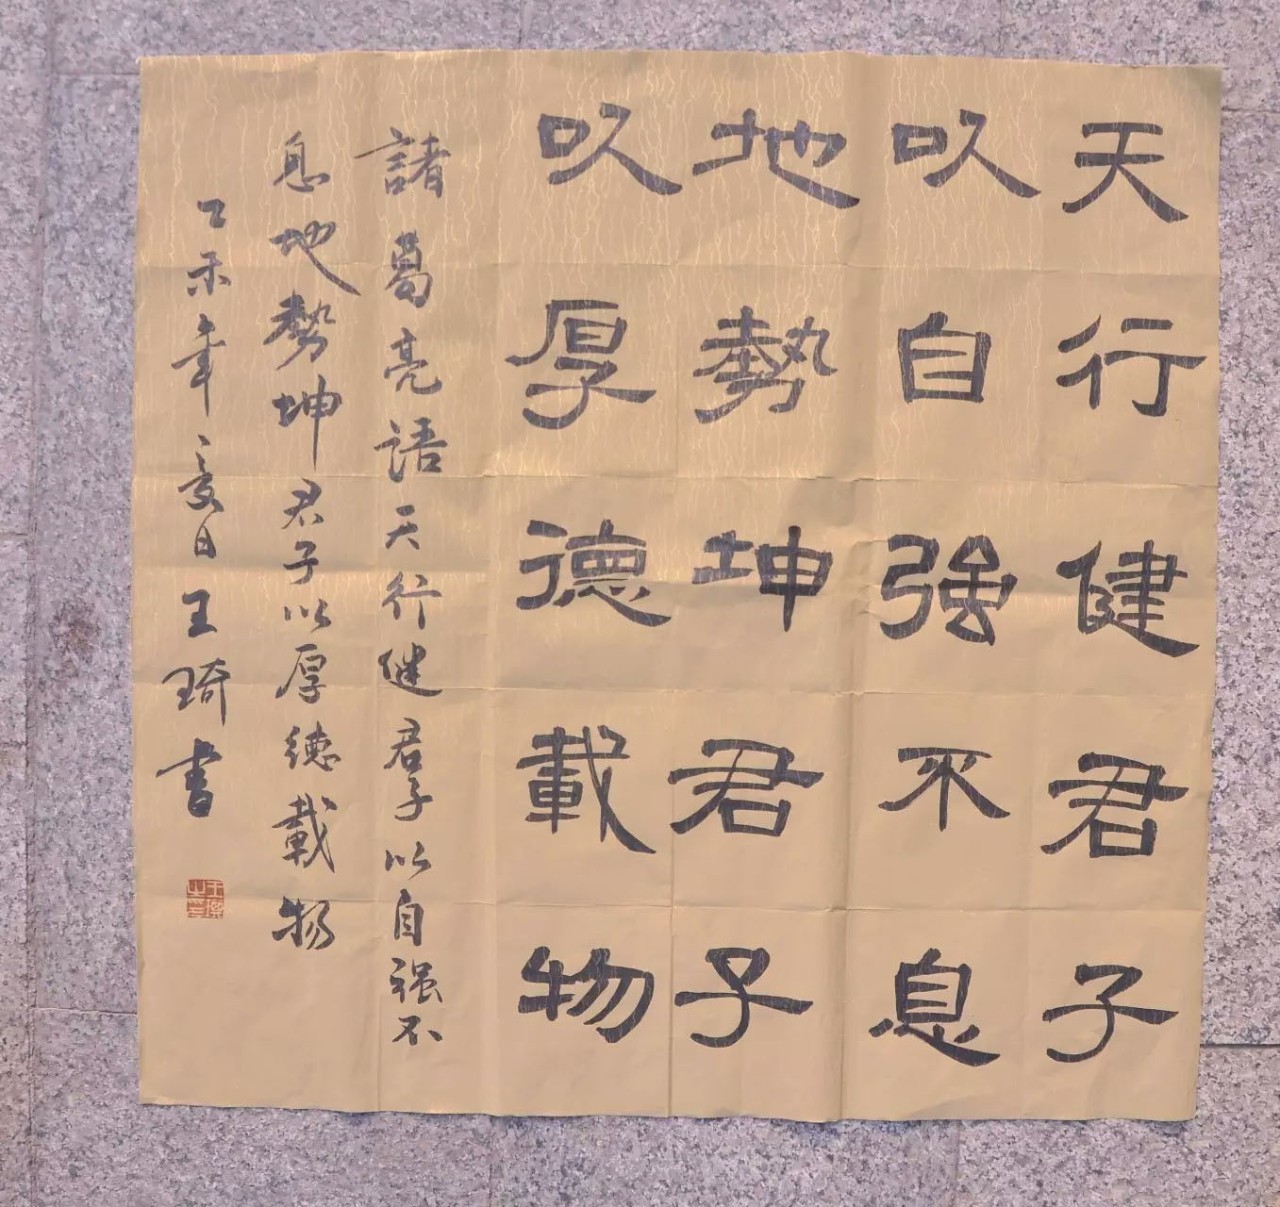 天行健君子
以自强不息
地勢坤君子
以厚德載物
諸葛亮語天行健君子以自强不
息地勢坤君子以厚德載物
乙未年夏日王琦書